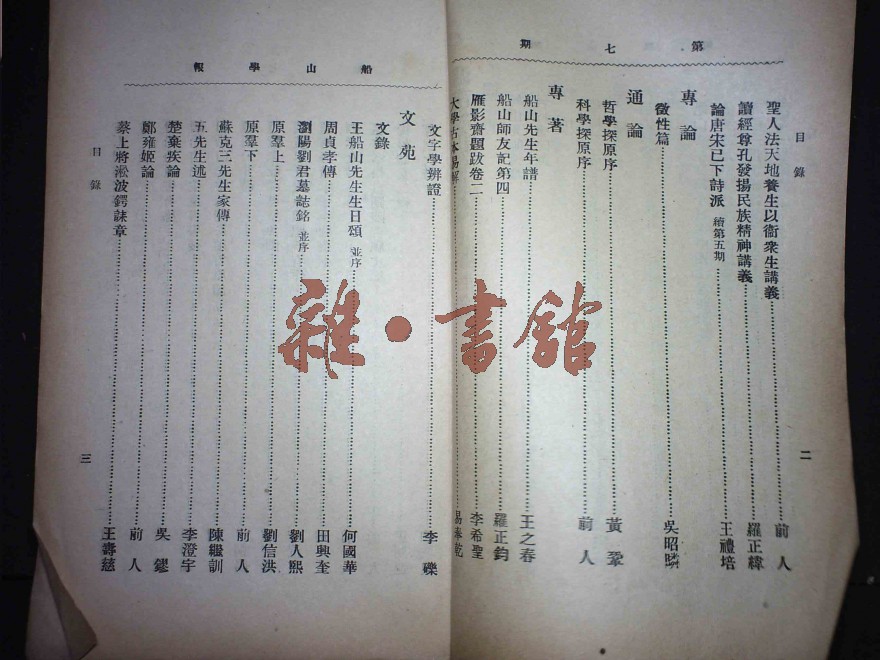 第七期
目錄
聖人法天地養生以衞衆生講義 前人
讀經尊孔發揚民族精神講義 羅正緯
論唐宋已下詩派 續第五期 王禮培
專論
徵性篇 吳昭䁕
通論
哲學探原序 黃鞏
科學探原序 前人
專著
船山先生年譜 王之春
船山師友記第四 羅正鈞
雁影齋題跋卷二 李希聖
大學古本易解 易奉乾
二
船山學報
文字學辨證 李礫
文苑
文錄
王船山先生生日頌 並序 何國華
周貞孝傳 田興奎
瀏陽劉君墓誌銘 並序 劉人熙
原羣上 劉信洪
原羣下 前人
蘇克三先生家傳 陳繼訓
五先生述 李澄宇
楚棄疾論 吳鏐
鄭雍姬論 前人
蔡上將淞波鍔誄章 王壽慈
目錄
三
雜·書館